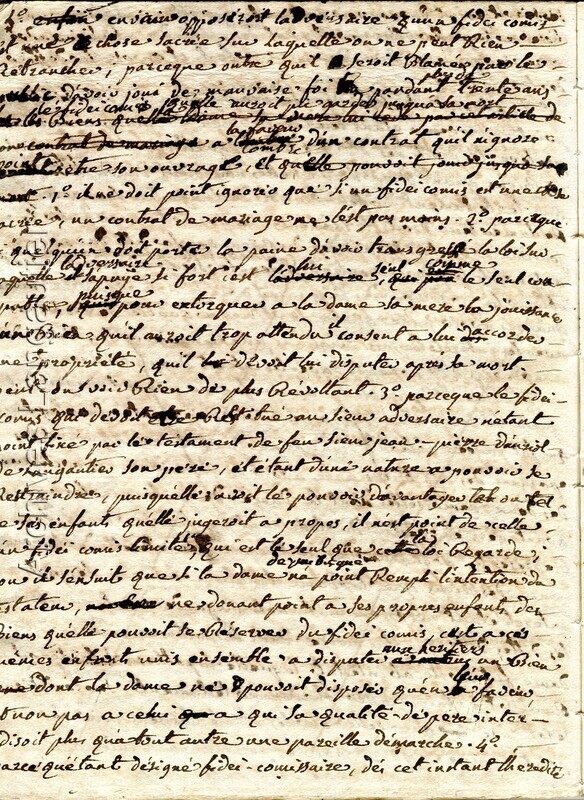 4º enfin en vain opposeroit l'adversaire qu'un fidei comis
est une chose sacrée sur laquelle on ne peut Rien
Retrancher, parceque outre quil seroit Blamer par le
public davoir joui de mauvaise foi pendant trente ans
d'un contrat quil n'ignore
point être son ouvrage, et quelle pouvoit jouir jusque sa
mort. 1º il ne doit point ignorer que si un fidei comis est une chose
sacrée, un contrat de mariage ne l'est pas moins. 2º parceque
si quelquun doit porter la paine davoir transgressé la loi sur
laquelle sapaye si fort c'est lui seul comme le seul cou-
pable, puisque pour extorquer a la dame sa mere la jouissance
d'un Bien quil auroit trop attendu il consent a lui accorder
une propriété, quil devoit lui disputer après sa mort.
peut on voir Rien de plus Révoltant. 3º parceque le fidei-
comis qui devoit etre Restitué au sieur adversaire nétant
point fixé par le testament de feu sieur jean-pierre
son pere, et étant d'une nature a pouvoir se
Restraindre, puisquelle avoit le pouvoir davantager tel ou tel
de ses enfants quelle jugeroit a propos, il n'est point de celle
d'un fidei comis limité, qui est le seul que la loi Regarde;
d'ou il sensuit que si la dame na point Rempli l'intention du
testateur, ne donant point a ses propres enfants des
biens quelle pouvoit se Réserver du fidei comis, cest a ces
mêmes enfants unis ensemble a disputer aux heritiers un Bien
dont la dame ne pouvoit disposer quen leur faveur
et non pas a celui a qui sa qualité de pere inter-
disoit plus qua tout autre une pareille démarche. 4º
parce quétant désigné fidei-comissaire, dès cet instant lhérédité